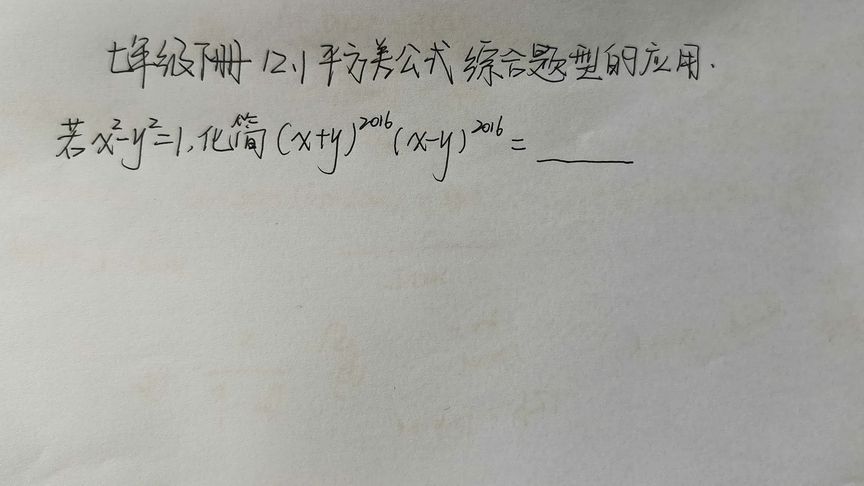 七年级下册 12.1 平方差公式 综合题型的应用.
若x²-y²=1,化简(x+y)²⁰¹⁶(x-y)²⁰¹⁶=______